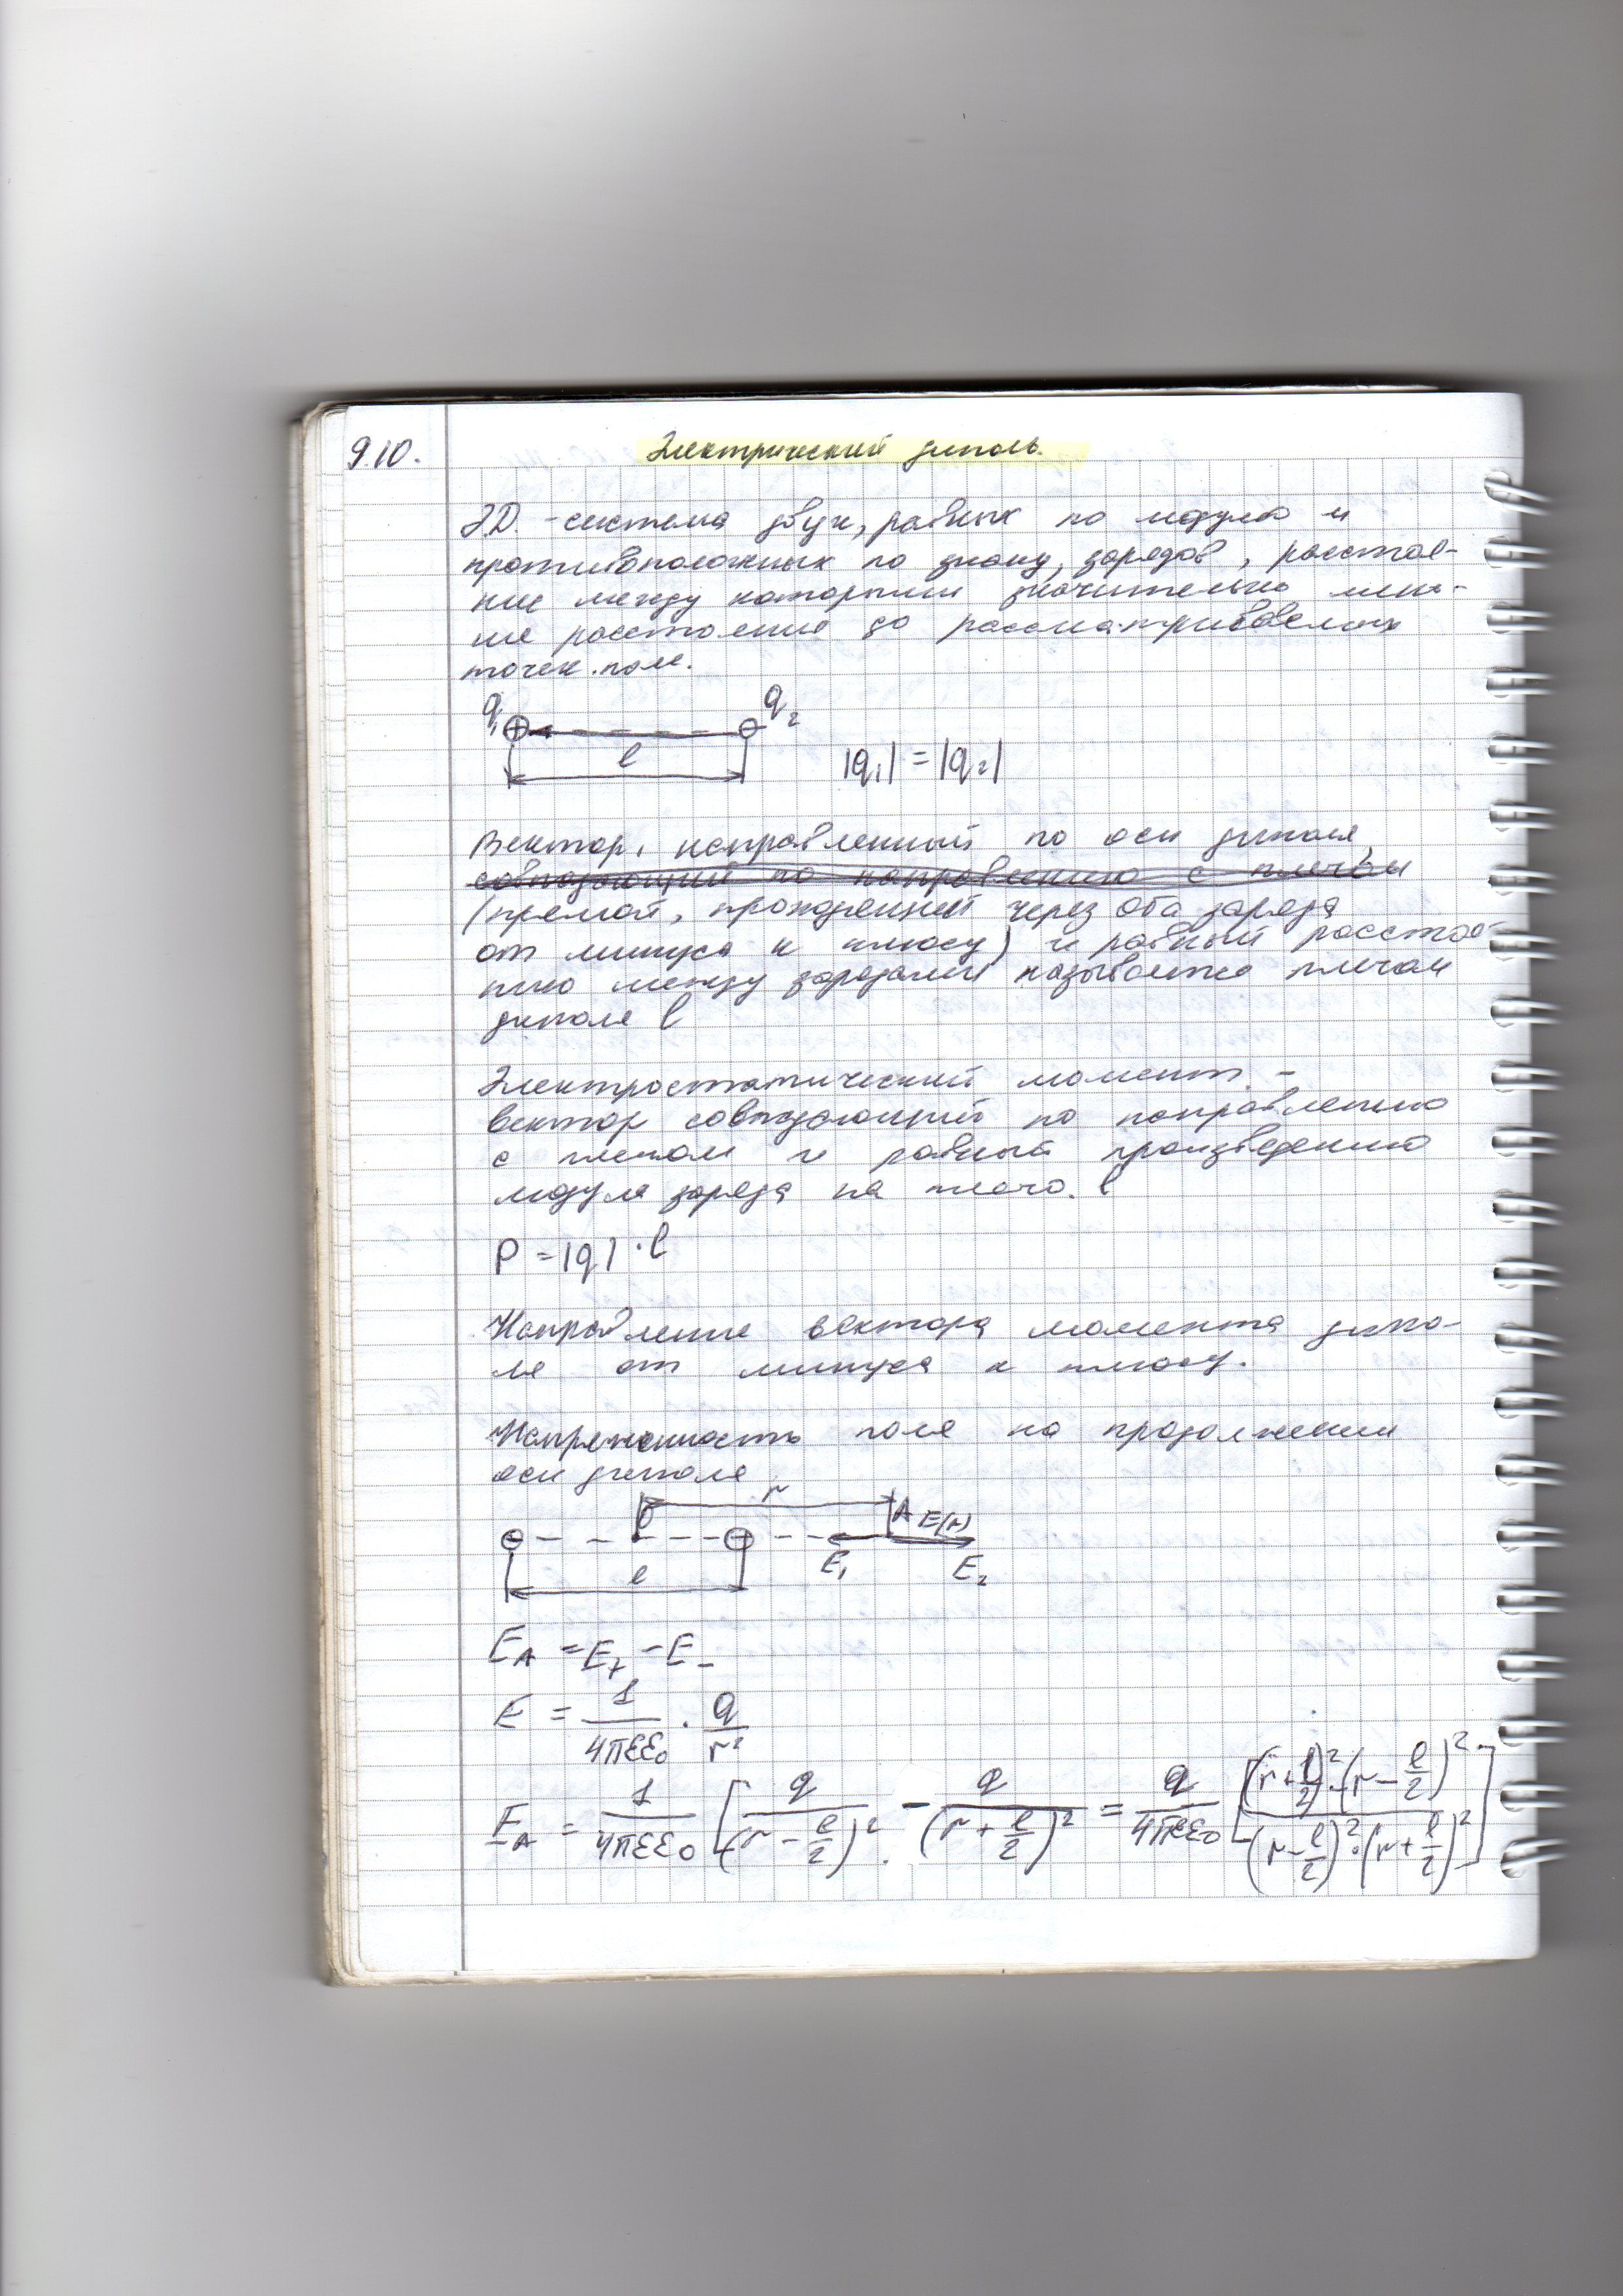 9.10.
Электрический диполь.
Э.D. - система двух, равных по модулю и
противоположных по знаку, зарядов, расстоя-
ние между которыми значительно мень-
ше расстояния до рассматриваемых
точек поля.
q₁ q₂
l
|q₁| = |q₂|
Вектор, направленный по оси диполя,
совпадающий по направлению с плечом
(прямой, проходящей через оба заряда
от минуса к плюсу) и равный расстоя-
нию между зарядами называется плечом
диполя l
Электростатический момент -
вектор совпадающий по направлению
с плечом и равный произведению
модуля заряда на плечо. l
P = |q| · l
Направление вектора момента дипо-
ля от минуса к плюсу.
Напряженность поля на продолжении
оси диполя
r
A E(r)
E₁ E₂
l
E_A = E₊ - E₋
E = 1/(4πεε₀) · q/r²
E_A = 1/(4πεε₀) [q/(r - l/2)² - q/(r + l/2)² = q/(4πεε₀) [((r + l/2)² - (r - l/2)²)/((r - l/2)² · (r + l/2)²)]